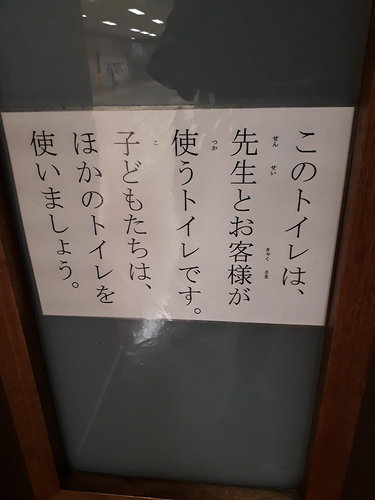 このトイレは、
先生とお客様が
使うトイレです。
子どもたちは、
ほかのトイレを
使いましょう。